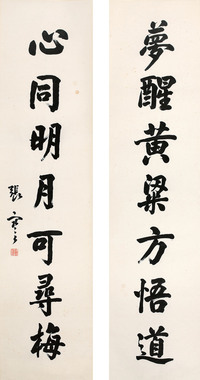 夢醒黃粱方悟道
心同明月可尋梅
張寒月